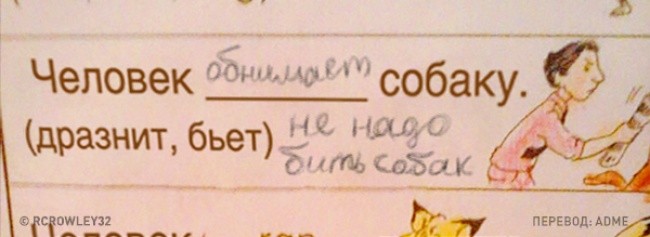 Человек обнимает собаку.
(дразнит, бьет) не надо
бить собак
© RCROWLEY32
ПЕРЕВОД: ADME
Человек